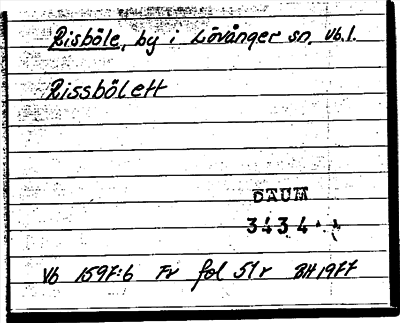 Risböle, by i Lövånger sn. Vb.l.
Rissbölett
DAUM
3434
Vb 1597:6 Fr fol 51r BH 1977